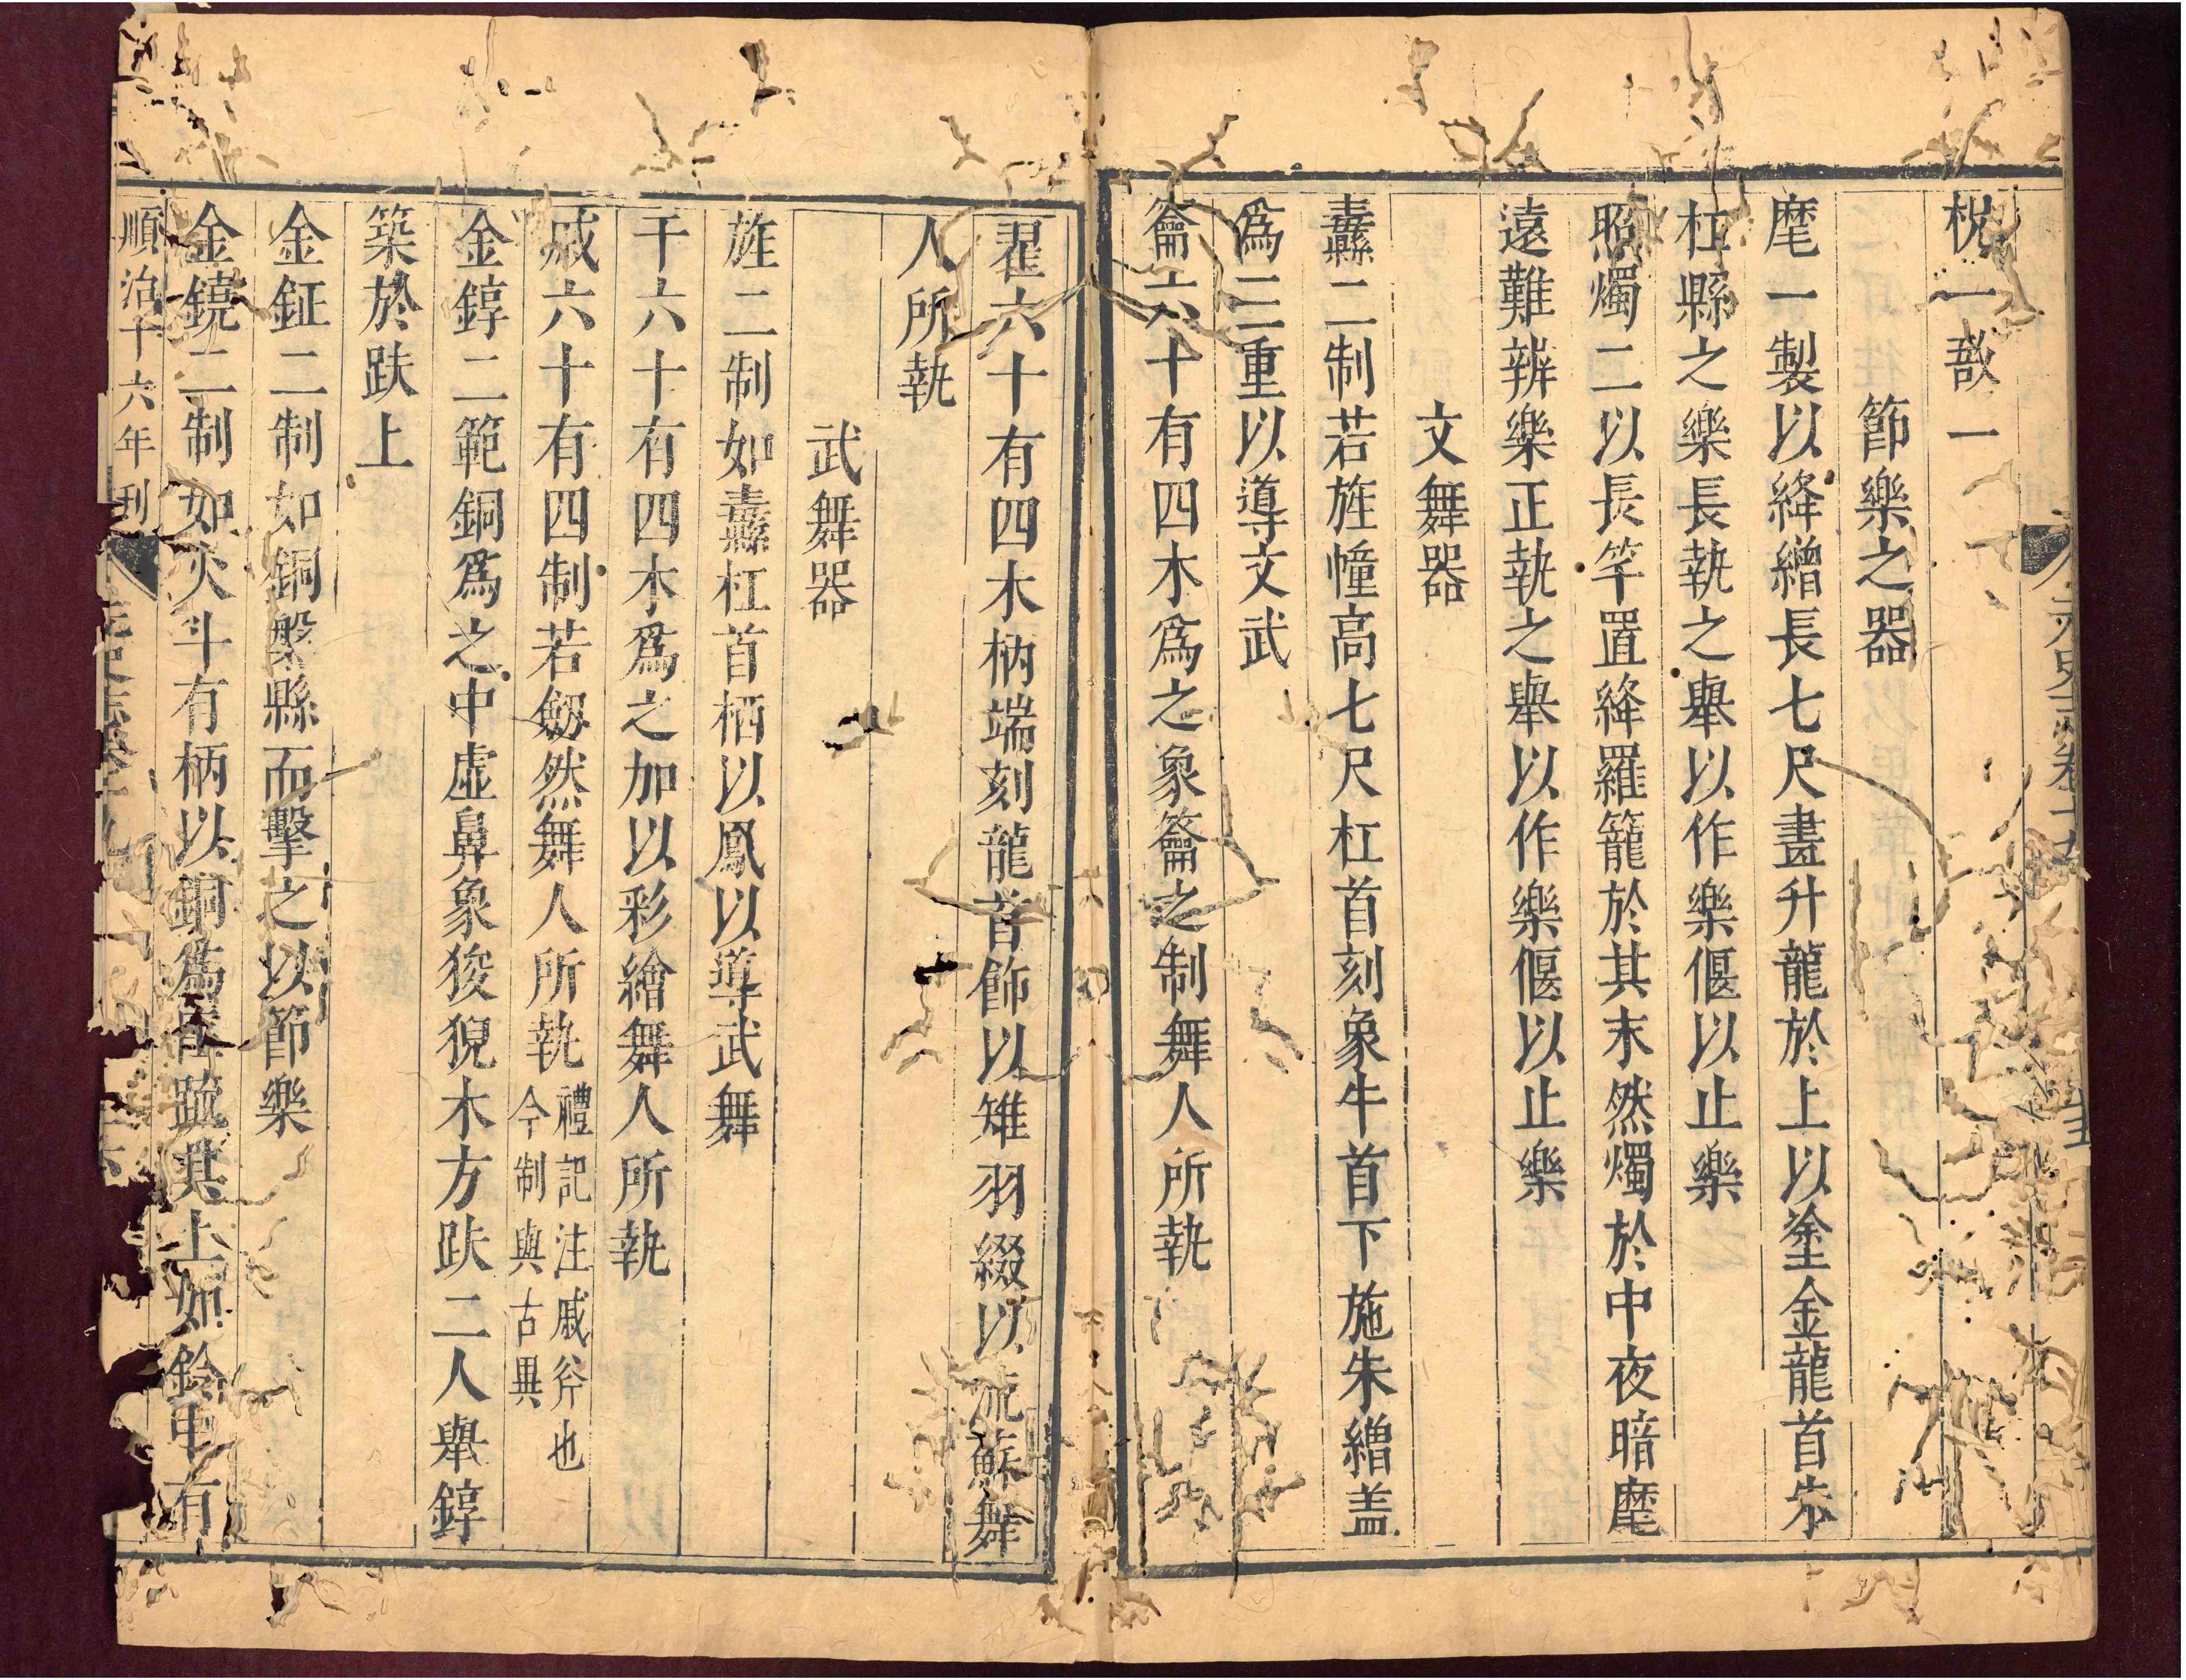 柷一敔一
節樂之器
麾一製以絳繒長七尺畫升龍於上以塗金龍首朱
杠縣之樂長執之舉以作樂偃以止樂
照燭二以長竿置絳羅籠於其末然燭於中夜暗麾
遠難辨樂正執之舉以作樂偃以止樂
文舞器
纛二制若旌幢高七尺杠首刻象牛首下施朱繒盖
爲三重以導文武
籥六十有四木爲之象籥之制舞人所執
翟六十有四木柄端刻龍首飾以雉羽綴以流蘇舞
人所執
武舞器
旌二制如纛杠首栖以鳳以導武舞
干六十有四木爲之加以彩繪舞人所執
戚六十有四制若劔然舞人所執禮記注戚斧也今制與古異
金錞二範銅爲之中虛鼻象狻猊木方趺二人舉錞
築於趺上
金鉦二制如銅槃縣而擊之以節樂
金鐃二制如火斗有柄以銅爲匡疏其上如鈴中有
順治十六年刊